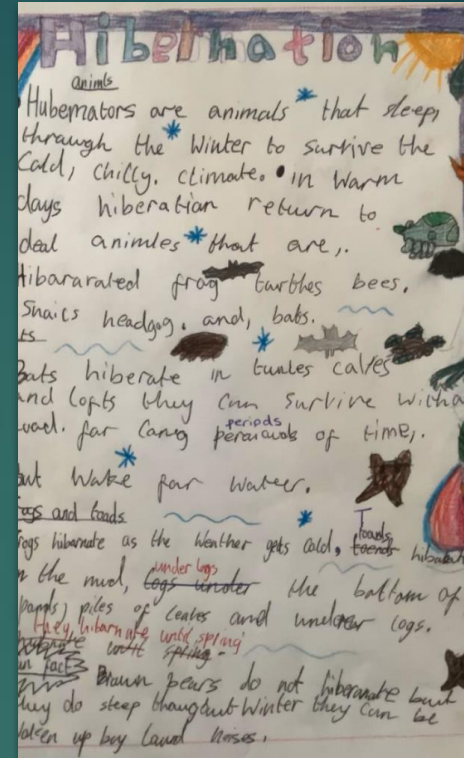 Hibernation
animls
Hubernators are animals that sleep,
through the Winter to surtive the
Cold, chilly. climate. in warm
days hiberatian return to
deal animles that are,.
Hibararated frog turthes bees.
Snails headgog. and, bats.
Bats hiberate in tunles calves
and lofts they can survive witha
far lang periods of time,.
but wake far water.
Frogs and toads
Frogs hibernate as the weather gets cold, Toads
in the mud, under logs the bottom of
ponds, piles of leaves and under logs.
they hibarnate until spring
until spring.
Brawn pears do not hibernate but
they do sleep thoughout winter they can be
waken up buy laud noises.